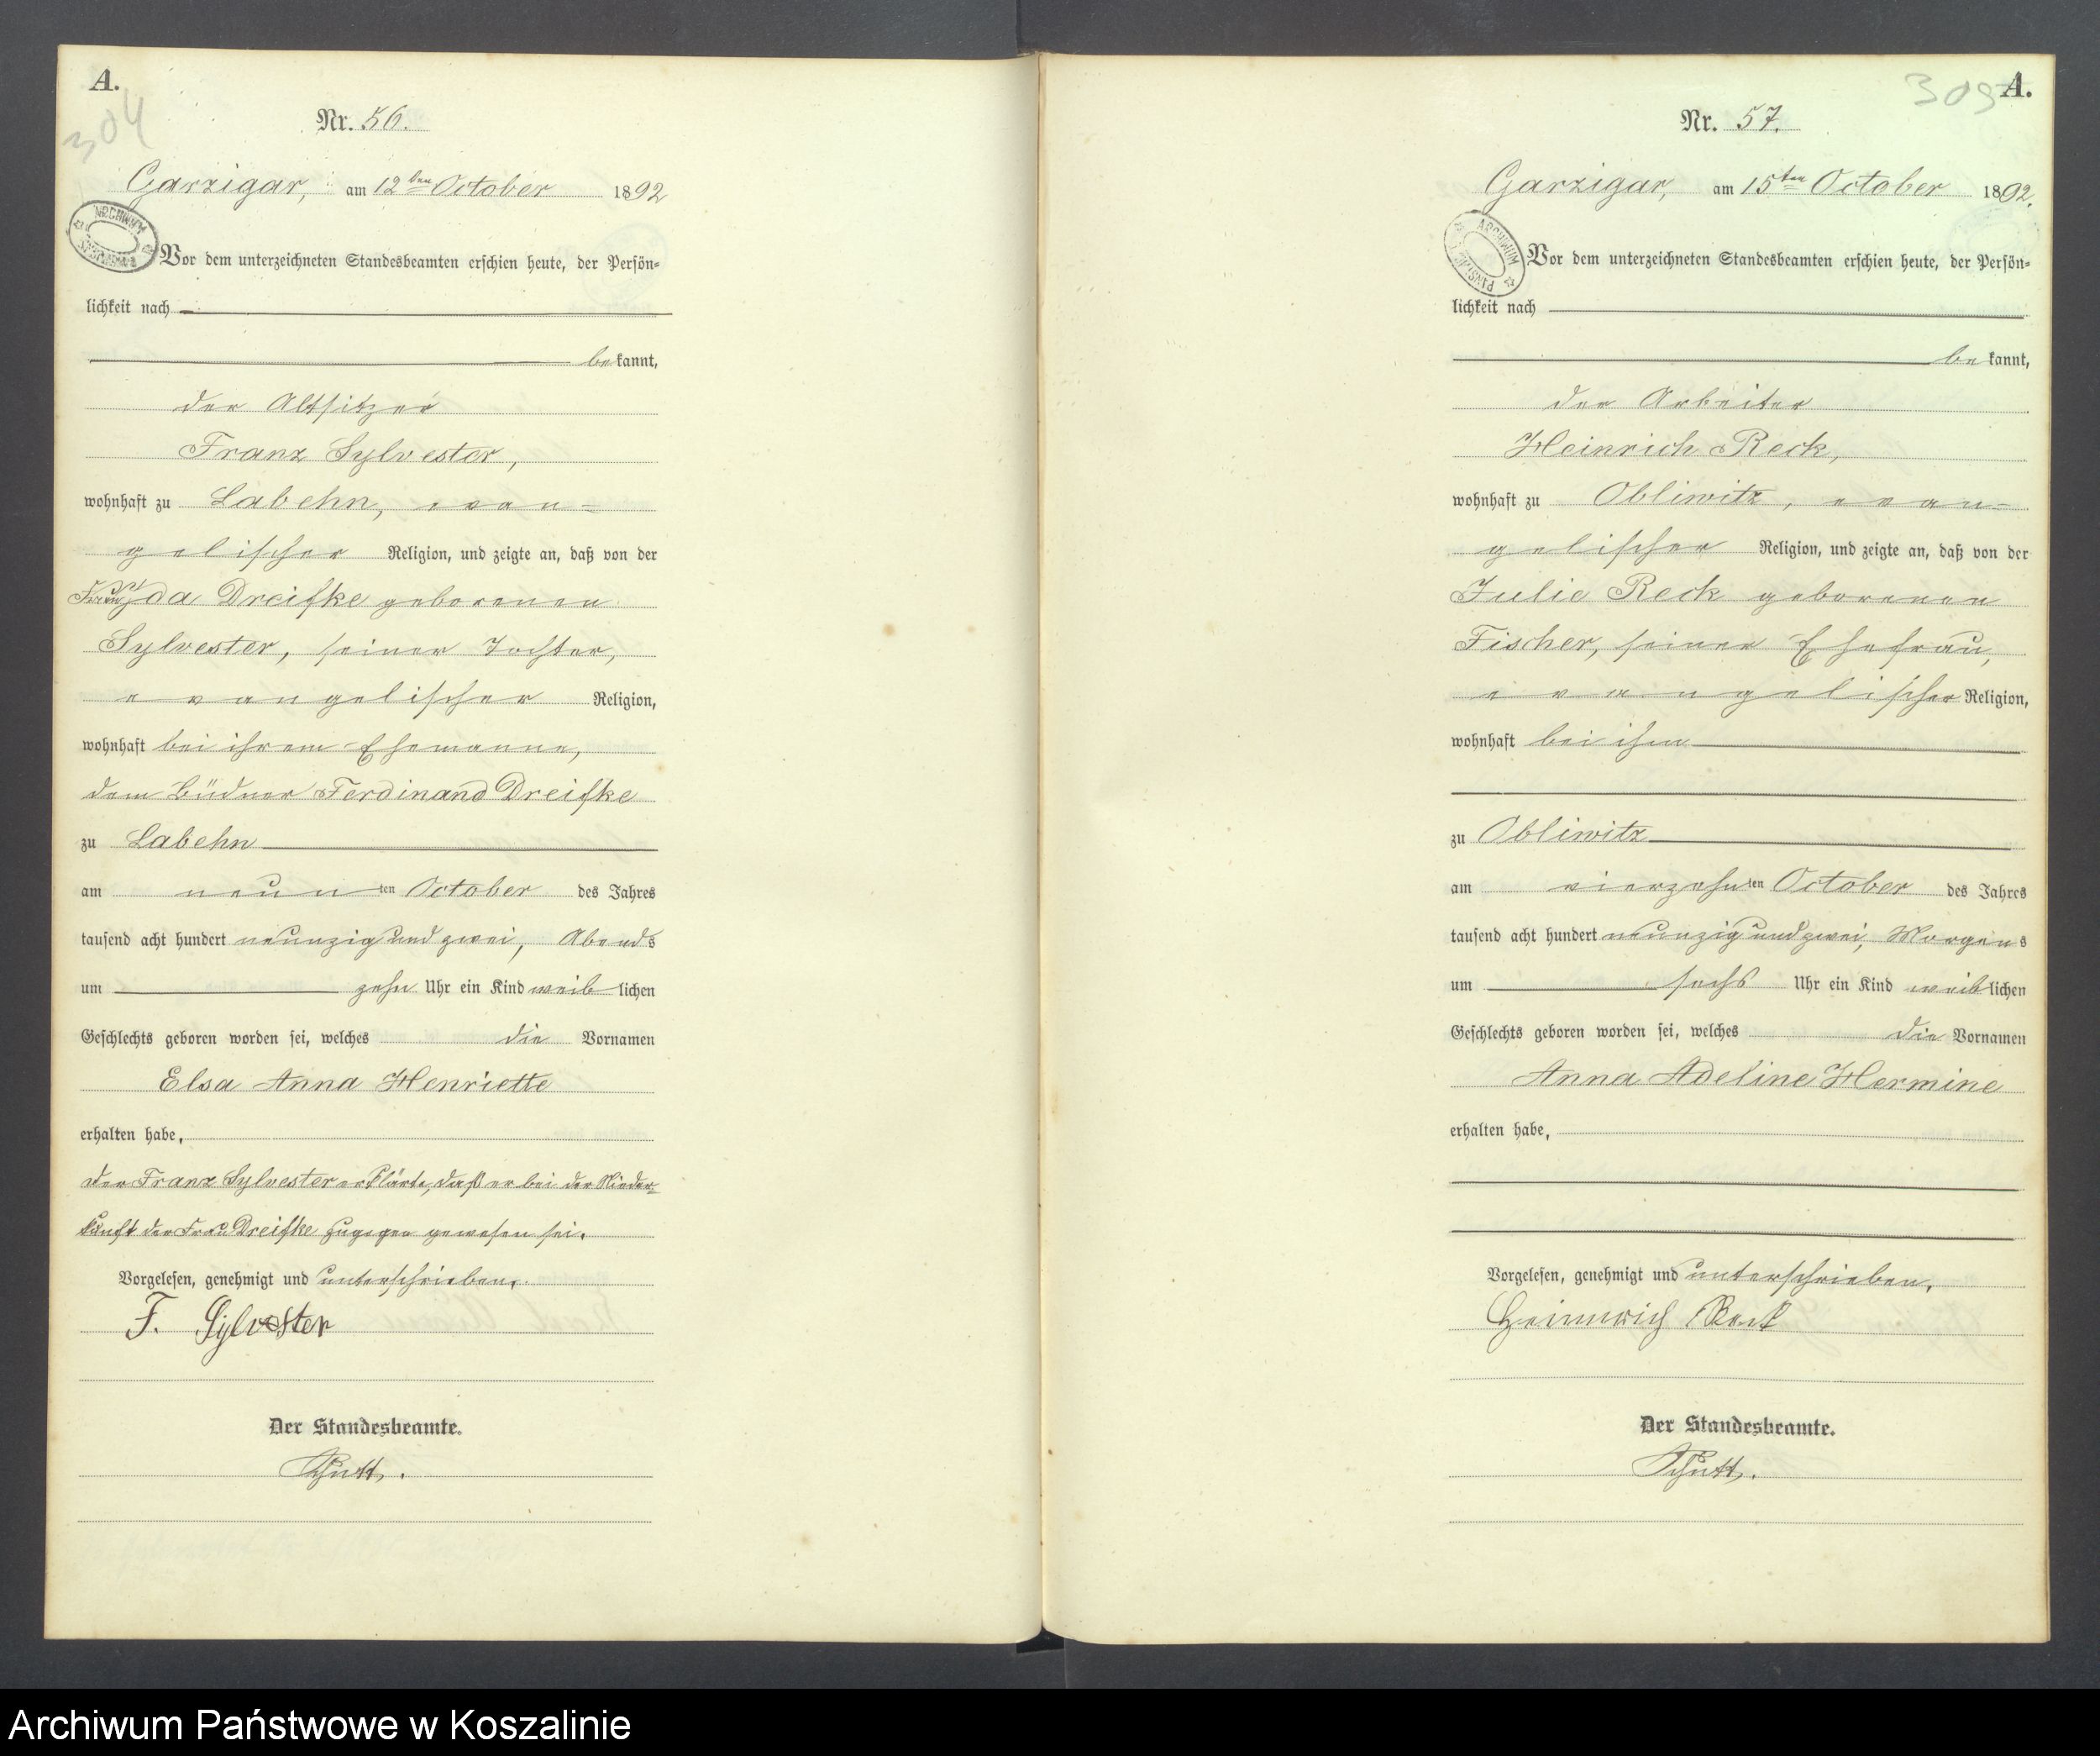 A.
304
Nr. 56.
Garzigar, am 12ten October 1892
ARCHIWUM
Vor dem unterzeichneten Standesbeamten erschien heute, der Persön=
lichkeit nach
bekannt,
der Altsitzer
Franz Sylvester,
wohnhaft zu Labehn, evan=
gelischer Religion, und zeigte an, daß von der
Frau Ida Dreifke geborenen
Sylvester, seiner Tochter,
evangelischer Religion,
wohnhaft bei ihrem Ehemanne,
dem Büdner Ferdinand Dreifke
zu Labehn
am neunten October des Jahres
tausend acht hundert neunzig und zwei, Abends
um zehn Uhr ein Kind weiblichen
Geschlechts geboren worden sei, welches die Vornamen
Elsa Anna Henriette
erhalten habe,
der Franz Sylvester erklärte, daß er bei der Nieder=
kunft der Frau Dreifke zugegen gewesen sei.
Vorgelesen, genehmigt und unterschrieben.
F. Sylvester
Der Standesbeamte.
A.
Nr. 57.
Garzigar, am 15ten October 1892.
ARCHIWUM
Vor dem unterzeichneten Standesbeamten erschien heute, der Persön=
lichkeit nach
bekannt,
der Arbeiter
Heinrich Reck,
wohnhaft zu Obliwitz, evan=
gelischer Religion, und zeigte an, daß von der
Julie Reck geborenen
Fischer, seiner Ehefrau,
evangelischer Religion,
wohnhaft bei ihm
zu Obliwitz
am vierzehnten October des Jahres
tausend acht hundert neunzig und zwei, Morgens
um sechs Uhr ein Kind weiblichen
Geschlechts geboren worden sei, welches die Vornamen
Anna Adeline Hermine
erhalten habe,
Vorgelesen, genehmigt und unterschrieben.
Heinrich Reck
Der Standesbeamte.
Archiwum Państwowe w Koszalinie